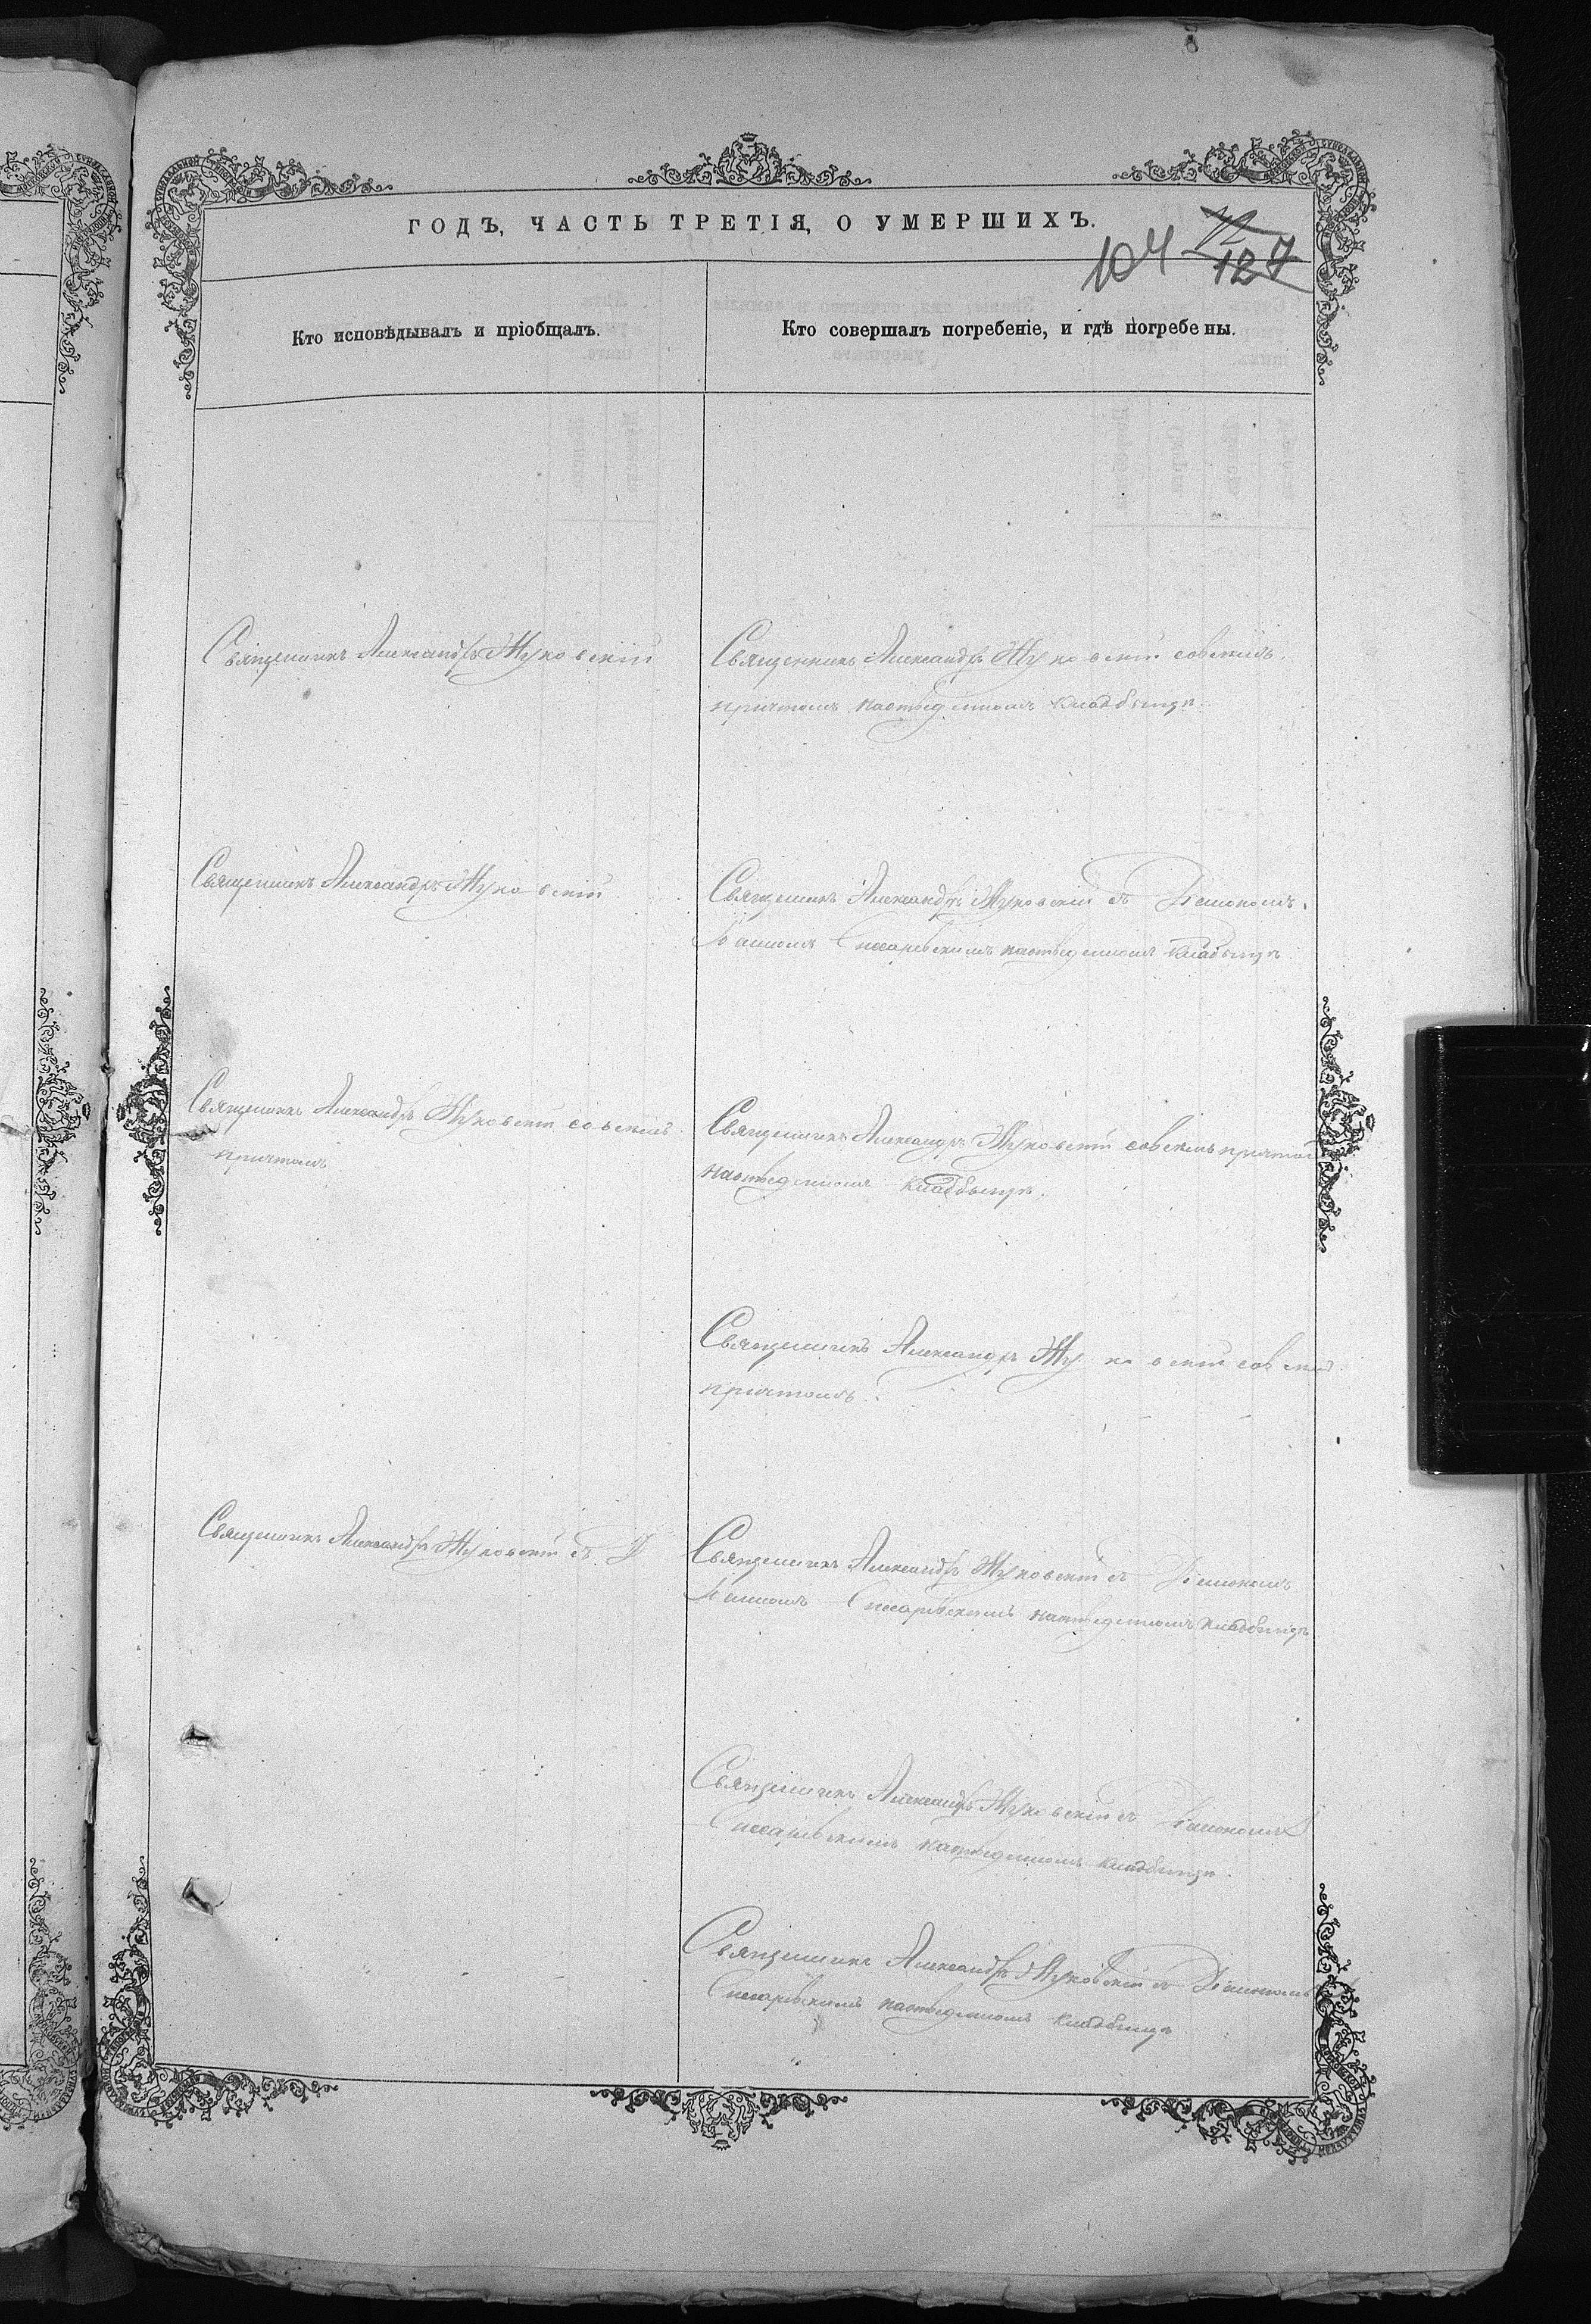 ГОДЪ, ЧАСТЬ ТРЕТІЯ, О УМЕРШИХЪ.
104 127
Кто исповѣдывалъ и пріобщалъ.
Кто совершалъ погребеніе, и гдѣ погребены.
Священникъ Александръ Жуковскій
Священникъ Александръ Жуковскій совсемъ
причтомъ наотведенномъ кладбищѣ.
Священникъ Александръ Жуковскій
Священникъ Александръ Жуковскій съ Діакономъ
наотведенномъ кладбищѣ.
Священникъ Александръ Жуковскій совсемъ
причтомъ
Священникъ Александръ Жуковскій совсемъ причтом
наотведенномъ кладбищѣ.
Священникъ Александръ Жуковскій совсем
причтомъ.
Священникъ Александръ Жуковскій съ Д
Священникъ Александръ Жуковскій съ Діакономъ
наотведенномъ кладбищѣ
Священникъ Александръ Жуковскій съ Діакономъ
наотведенномъ кладбищѣ.
Священникъ Александръ Жуковскій съ Діакономъ
наотведенномъ кладбищѣ